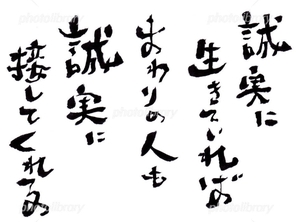 誠実に
生きていれば
まわりの人も
誠実に
接してくれるの
photolibrary